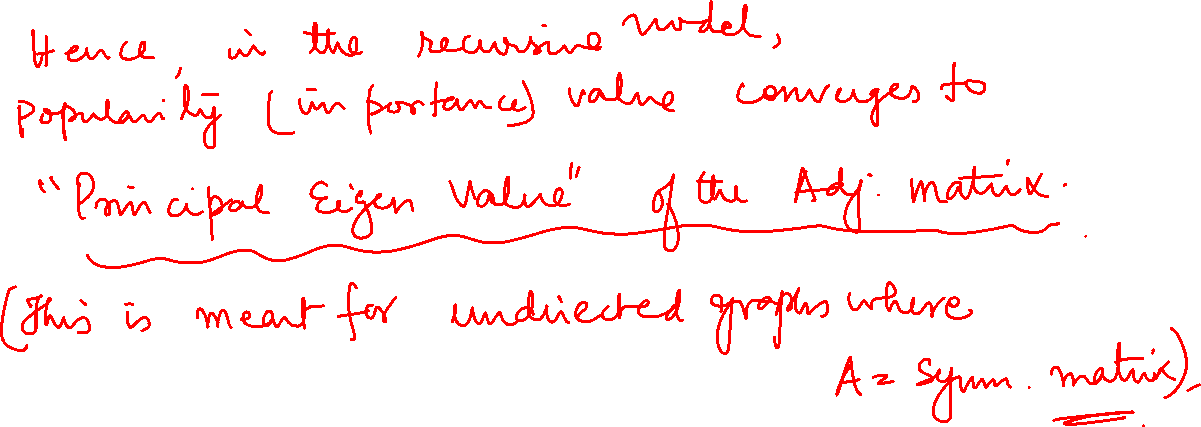 Hence, in the recursive model,
popularity (importance) value converges to
"Principal Eigen Value" of the Adj. matrix.
(This is meant for undirected graphs where
A = Symm. matrix).